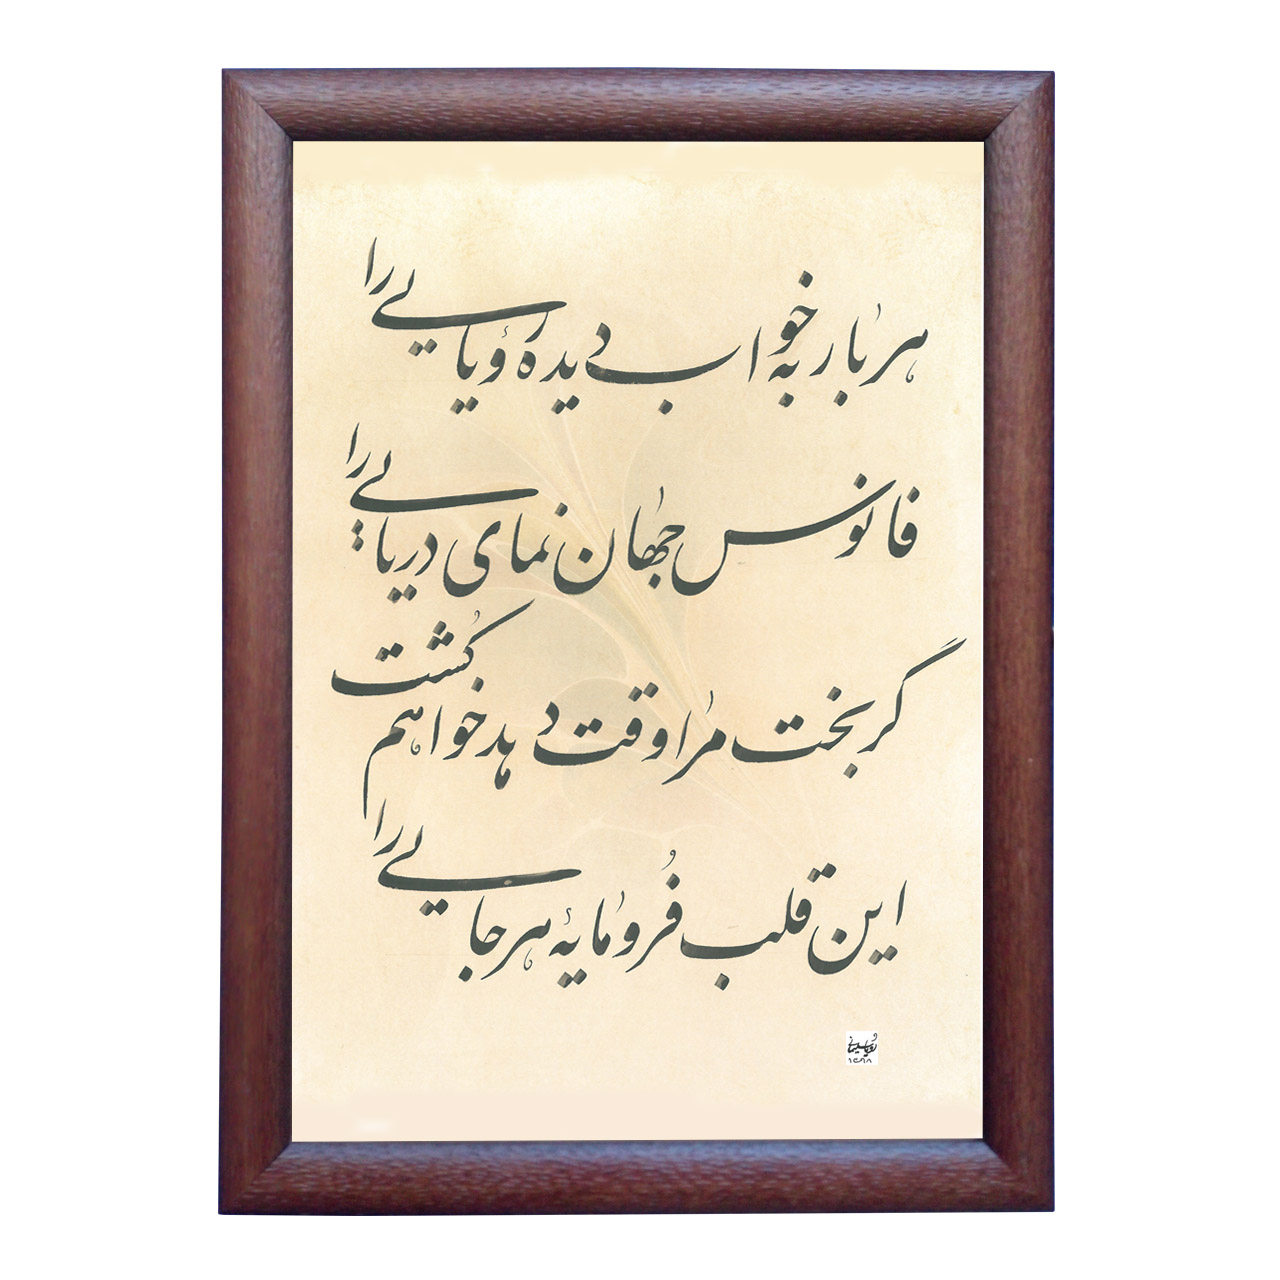 هر بار به خواب دیده رؤیایی را
فانوس جهان نمای دریایی را
گر بخت مرا وقت دهد خواهم کُشت
این قلب فُرومایهٔ هرجایی را
۱۳۹۸